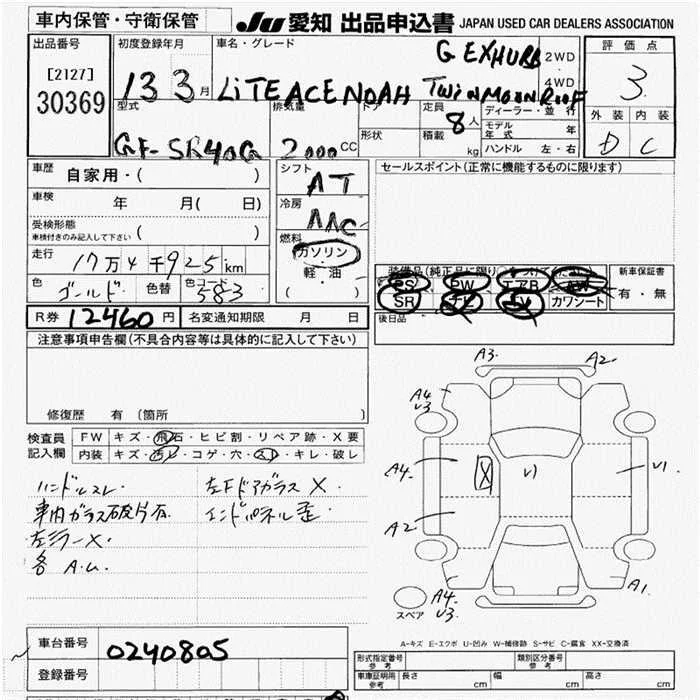 車内保管・守衛保管
JU 愛知 出品申込書 JAPAN USED CAR DEALERS ASSOCIATION
出品番号
[2127]
30369
初度登録年月
13 3月
車名・グレード
LiTEACENOAH
G EXHURB
TWiNMOONROOF
2WD
・
4WD
評価点
3
外装 内装
D C
型式
GF-SR40G
排気量
2000CC
ドア
形状
定員
8人
積載
kg
ディーラー・並行
モデル年式 年
ハンドル 左・右
車歴
自家用・( )
車検
年 月( 日)
受検形態
車検付きのみ記入して下さい ( )
走行
17万4千925km
色
ゴールド
色替
色コード
583
シフト
AT
冷房
AAC
燃料
ガソリン
・
軽・油
( )
セールスポイント(正常に機能するものに限ります)
PS PW エアB AW
SR カワシート
新車保証書
有・無
後日品
R券 12460円 名変通知期限 月 日
注意事項申告欄(不具合内容等は具体的に記入して下さい)
修復歴 有 (箇所
検査員
記入欄
FW キズ・飛石・ヒビ割・リペア跡・X要
内装 キズ・汚レ・コゲ・穴・スレ・キレ・破レ
ハンドルスレ
左Fドアガラス X
車内ガラス破片有
インドパネル歪
左ミラーX
各 A.U.
A3.
A2.
A4
U3
A4.
X
U
U1
A2
A4
U3.
A1.
スペア
A-キズ E-エクボ U-凹み W-補修跡 S-サビ C-腐食 XX-交換済
車台番号
0240805
登録番号
形式指定番号
参考
類別区分番号
参考
車庫証明用
参考
長さ cm
幅 cm
高さ cm